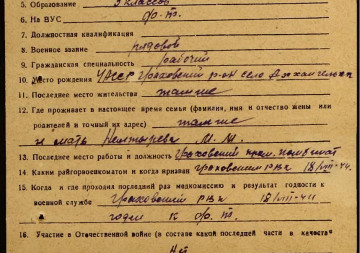 5. Образование 5 классов
6. На ВУС б/о.т.
7. Должностная квалификация
8. Военное звание рядовой
9. Гражданская специальность рабочий
10. Место рождения УССР р-он село
11. Последнее место жительства там же
12. Где проживает в настоящее время семья (фамилия, имя и отчество жены или
родителей и точный их адрес) там же
и мать М. И.
13. Последнее место работы и должность
14. Каким райгорвоенкоматом и когда призван РВК 18/VIII-44
15. Когда и где проходил последний раз медкомиссию и результат годности к
военной службе РВК 18/VIII-44
годен к
16. Участие в Отечественной войне (в составе какой последней части и в качестве
Нет